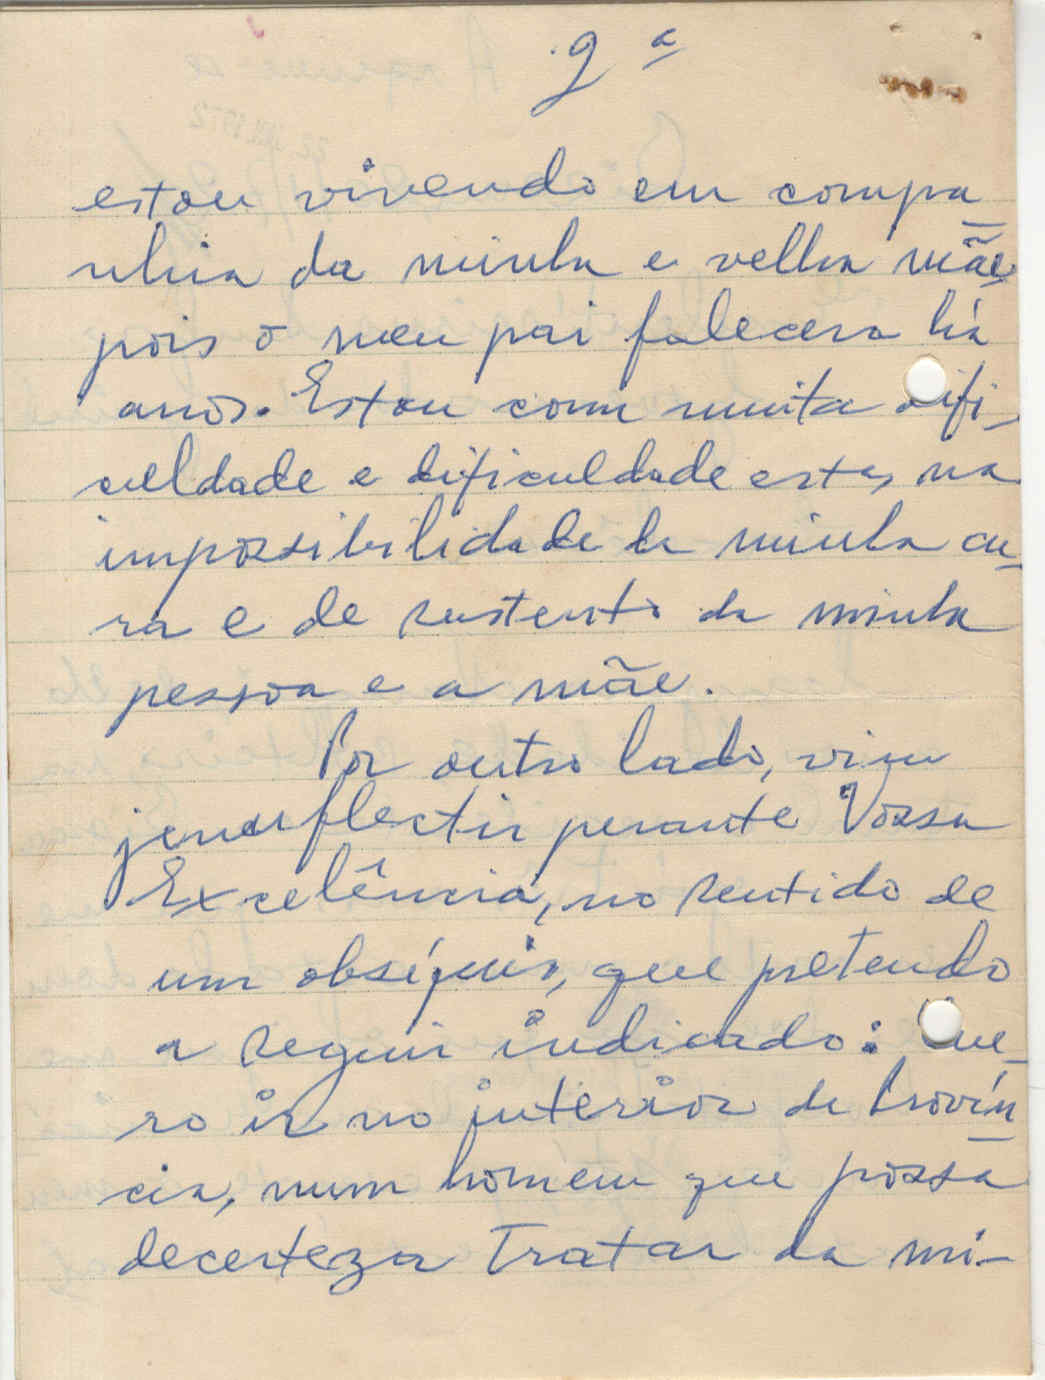 2ª
estou vivendo em compa
nhia da minha e velha mãe,
pois o meu pai falecera há
anos. Estou com muita difi-
culdade e dificuldade esta, na
impossibilidade da minha cu-
ra e de sustento da minha
pessoa e a mãe.
Por outro lado, vim
jenuflectir perante Vossa
Excelência, no sentido de
um obséquio, que pretendo
a seguir indicado: Que-
ro ir no interior da Provín-
cia, num homem que possa
decerteza tratar da mi-